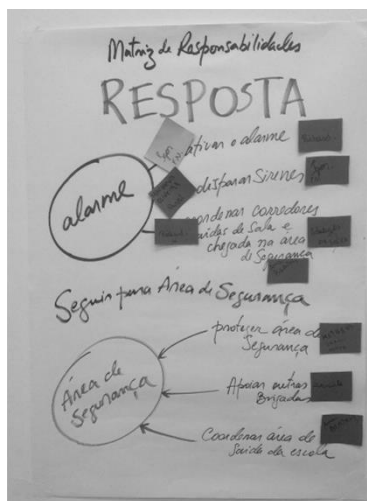 Matriz de Responsabilidades
RESPOSTA
alarme
ativar o alarme
disparar Sirenes
coordenar corredores
saídas de Sala e
chegada na área
de Segurança
Seguir para Área de Segurança
Área de
Segurança
proteger área de
Segurança
Apoiar outras
Brigadas
Coordenar área de
Saída da escola